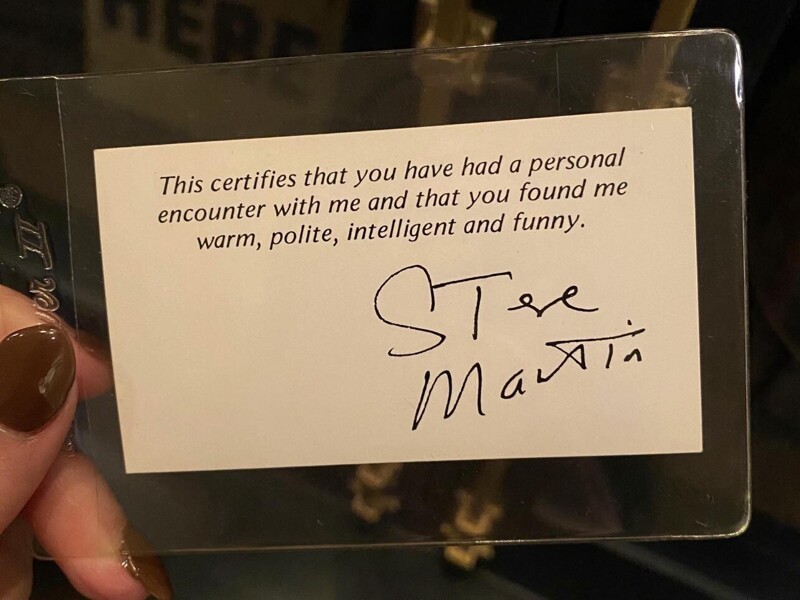 HERE
This certifies that you have had a personal
encounter with me and that you found me
warm, polite, intelligent and funny.
Steve
Martin